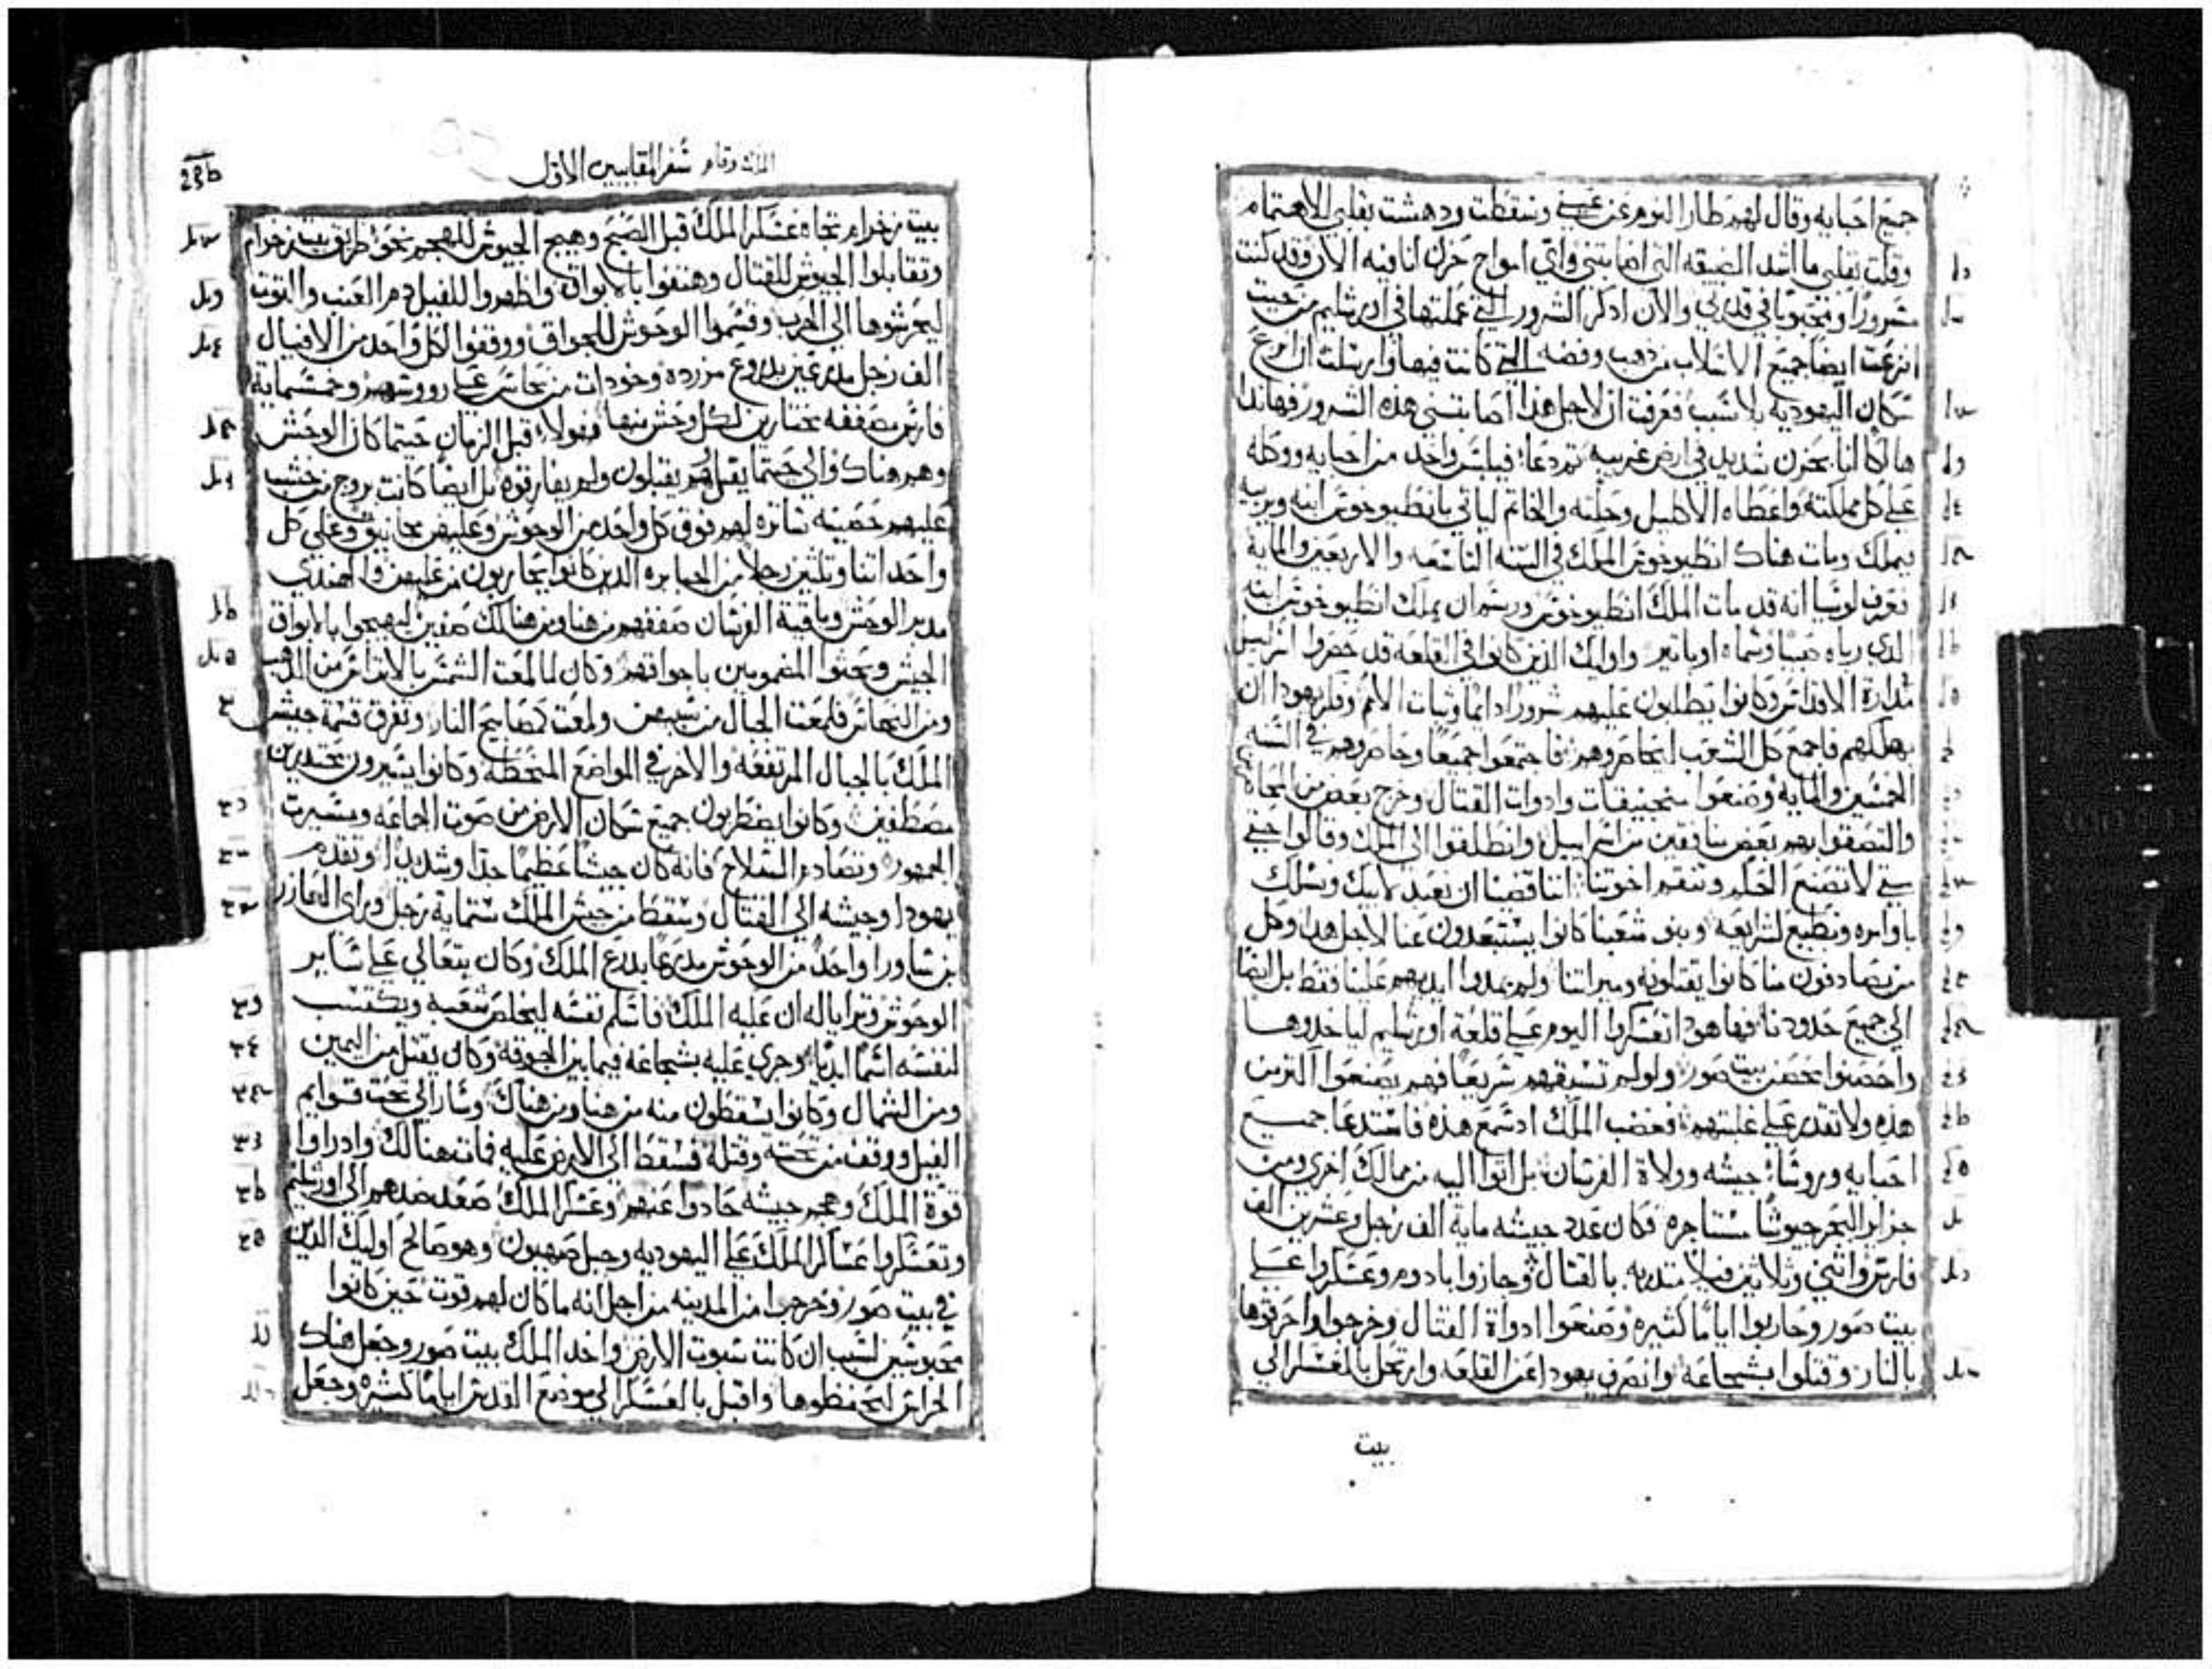 جميع احبايه وقال لهم طار النوم عن عيني وسقطت ودهشت بقلبي الاهتمام
وقلت بقلبي ما اشد الضيقه التي اصابتني واي امواج حزن انا فيه الان وقد كنت
مسرورا ومحبوبا في قدرتي والان ادكر الشرور التي عملتها في اورشليم من حيت
انزعت ايضا جميع الاسلاب من دهب وفضه التي كانت فيها وارسلت ان
سكان اليهوديه بلا سبب فعرفت ان لاجل هذا اصابتني هذه الشرور فهاندا
هالكا انا بحزن شديد في ارض غريبه ثم دعا فيلبس واحد من احبايه ووكله
على كل مملكته واعطاه الاكليل وحلته والخاتم لياتي بانطيوخوس ابنه ويربيه
ويملك ومات هناك انطيوخوس الملك في السنه التاسعه والاربعين والمايه
فعرف لوسيا انه قد مات الملك انطيوخوس ورسم ان يملك انطيوخوس ابنه
الدي رباه صبيا وسماه اوباتير واوليك الذين كانوا في القلعه قد حصروا اسراييل
بدارة الاقداس وكانوا يطلبون عليهم شرورا دايما وثبات الامم وفكر يهودا ان
يهلكهم فاجمع كل الشعب ليحاصروهم فاجتمعوا جميعا وحاصروهم في السنه
الخمسين والمايه وصنعوا منجنيقات وادوات القتال وخرج بعض من
والتصقوا بهم بعض منافقين من اسراييل وانطلقوا الى الملك وقالوا حتى
متى لا تصنع الحكم وتنقم اخوتنا اننا قضينا ان نعبد لابيك ونسلك
باوامره ونطيع لشرايعه وبنو شعبنا كانوا يستبعدون عنا لاجل هدا وكل
من يصادفون منا كانوا يقتلونه وميراتنا ولم يمدوا ايديهم علينا فقط بل ايضا
الى جميع حدودنا فها هودا تعسكروا اليوم على قلعة اورشليم لياخدوها
واحصنوا بحصن بيت صور ولو لم تسبقهم سريعا فهم يصنعوا اكثر من
هذه ولا تقدر على غلبتهم فغضب الملك اد سمع هذه فاستدعا جميع
احبايه وروساء جيشه وولاة الفرسان بل اتوا اليه من ممالك اخرى ومن
جزاير البحر جيوشا مستاجره فكان عدد جيشه ماية الف رجل وعشرين الف
فارس واتنين وثلاتين فيلا متدربه بالقتال وجازوا بادوم وعسكروا على
بيت صور وحاربوا اياما كتيره وصنعوا ادواة القتال وخرجوا واحرقوها
بالنار وقتلوا بشجاعه وانصرف يهودا عن القلعه وارتحل بالعسكر الى
بيت
سفر المقابيين الاول
23b
بيت زخرام تجاه عسكر الملك قبل الصبح وهيج الجيوش للهجم نحو طريق بيت زخرام
وتقابلوا الجيوش للقتال وهتفوا بالابواق واظهروا للفيل دم العنب والتوت
ليحرشوها الى الحرب وقسموا الوحوش للجواق ووقفوا لكل واحد من الافيال
الف رجل مدرعين بدروع مزرده وخودات من نحاس على رووسهم وخمسماية
فارس مصففه مختارين لكل وحش منها فهولاء قبل الزمان حيتما كان الوحش
وهم هناك والى حيتما يقبل هم يقبلون ولم يفارقوه بل ايضا كانت بروج من خشب
عليهم حصينه ساتره لهم فوق كل واحد من الوحوش وعليهن مجانيق وعلى كل
واحد اتنا وتلتين رجلا من الجبابره الذين كانوا يحاربون من عليهن والهندي
مدبر الوحش وباقية الفرسان صففهم من هنا ومن هنالك صفين ليهيجوا بالابواق
الجيش ويحثوا المضمومين باجواقهم وكان لما لمعت الشمس بالاتراس من الدهب
ومن النحاس فلمعت الجبال من سببهن ولمعت كمصابيح النار وتفرق قسمة جيش
الملك بالجبال المرتفعه والاخر في المواضع المنحطه وكانوا يسيرون بتحدير
مصطفين وكانوا يضطربون جميع سكان الارض من صوت الجماعه ومسيرت
الجمهور وتصادم السلاح فانه كان جيشا عظيما جدا وشديدا وتقدم
يهودا وجيشه الى القتال وسقط من جيش الملك ستماية رجل وراى العازر
بن ساورا واحدا من الوحوش مدرعا بدرع الملك وكان يتعالى على ساير
الوحوش وترايا له ان عليه الملك فاسلم نفسه ليخلص شعبه ويكتسب
لنفسه اسما ابديا وجرى عليه بشجاعه فيما بين الجوقه وكان يقتل من اليمين
ومن الشمال وكانوا يسقطون منه من هنا ومن هناك وسار الى تحت قوايم
الفيل ووقف من تحته وقتله فسقط الى الارض عليه فمات هنالك واد راوا
قوة الملك وهجم جيشه حادوا عنهم وعسكر الملك صعد ضدهم الى اورشليم
وتعسكروا عساكر الملك على اليهوديه وجبل صهيون وهو صالح اوليك الدين
في بيت صور وخرجوا من المدينه من اجل انه ما كان لهم قوت حين كانوا
محبوسين لسبب ان كانت سبوت الارض واخد الملك بيت صور وجعل هناك
الحراس ليحفظوها واقبل بالعسكر الى موضع القدس اياما كتيره وجعل